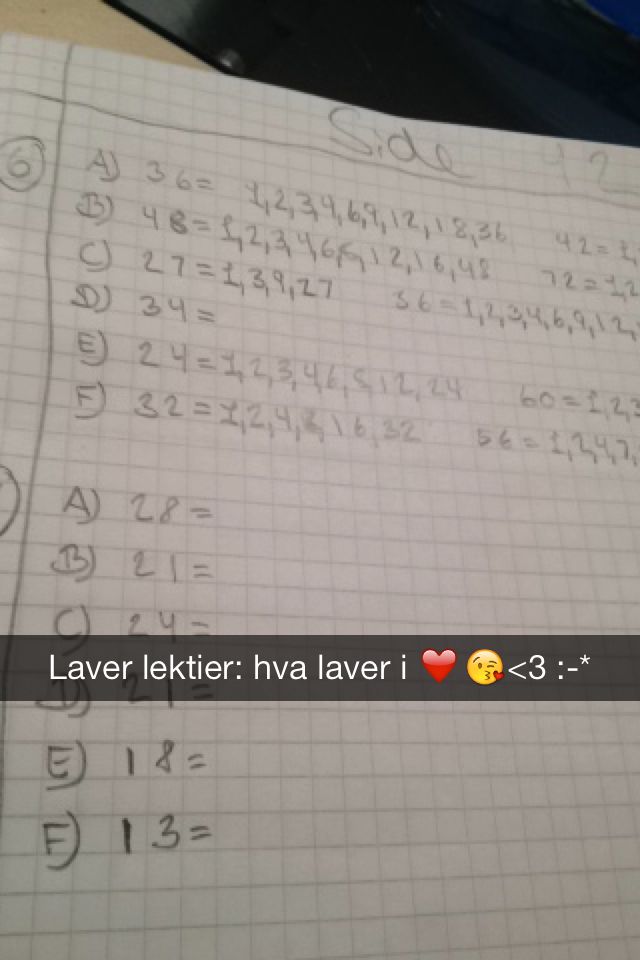 Side 42
6
A) 36= 1,2,3,4,6,9,12,18,36 42=1,
B) 48=1,2,3,4,6, ,12,16,48 72=1,2
C) 27=1,3,9,27 36=1,2,3,4,6,9,12,
D) 34=
E) 24=1,2,3,4,6, ,12,24 60=1,2,3
F) 32=1,2,4,8,16,32 56=1,2,4,7,
A) 28=
B) 21=
C) 24=
Laver lektier: hva laver i ❤️ 😘<3 :-*
D) 21=
E) 18=
F) 13=